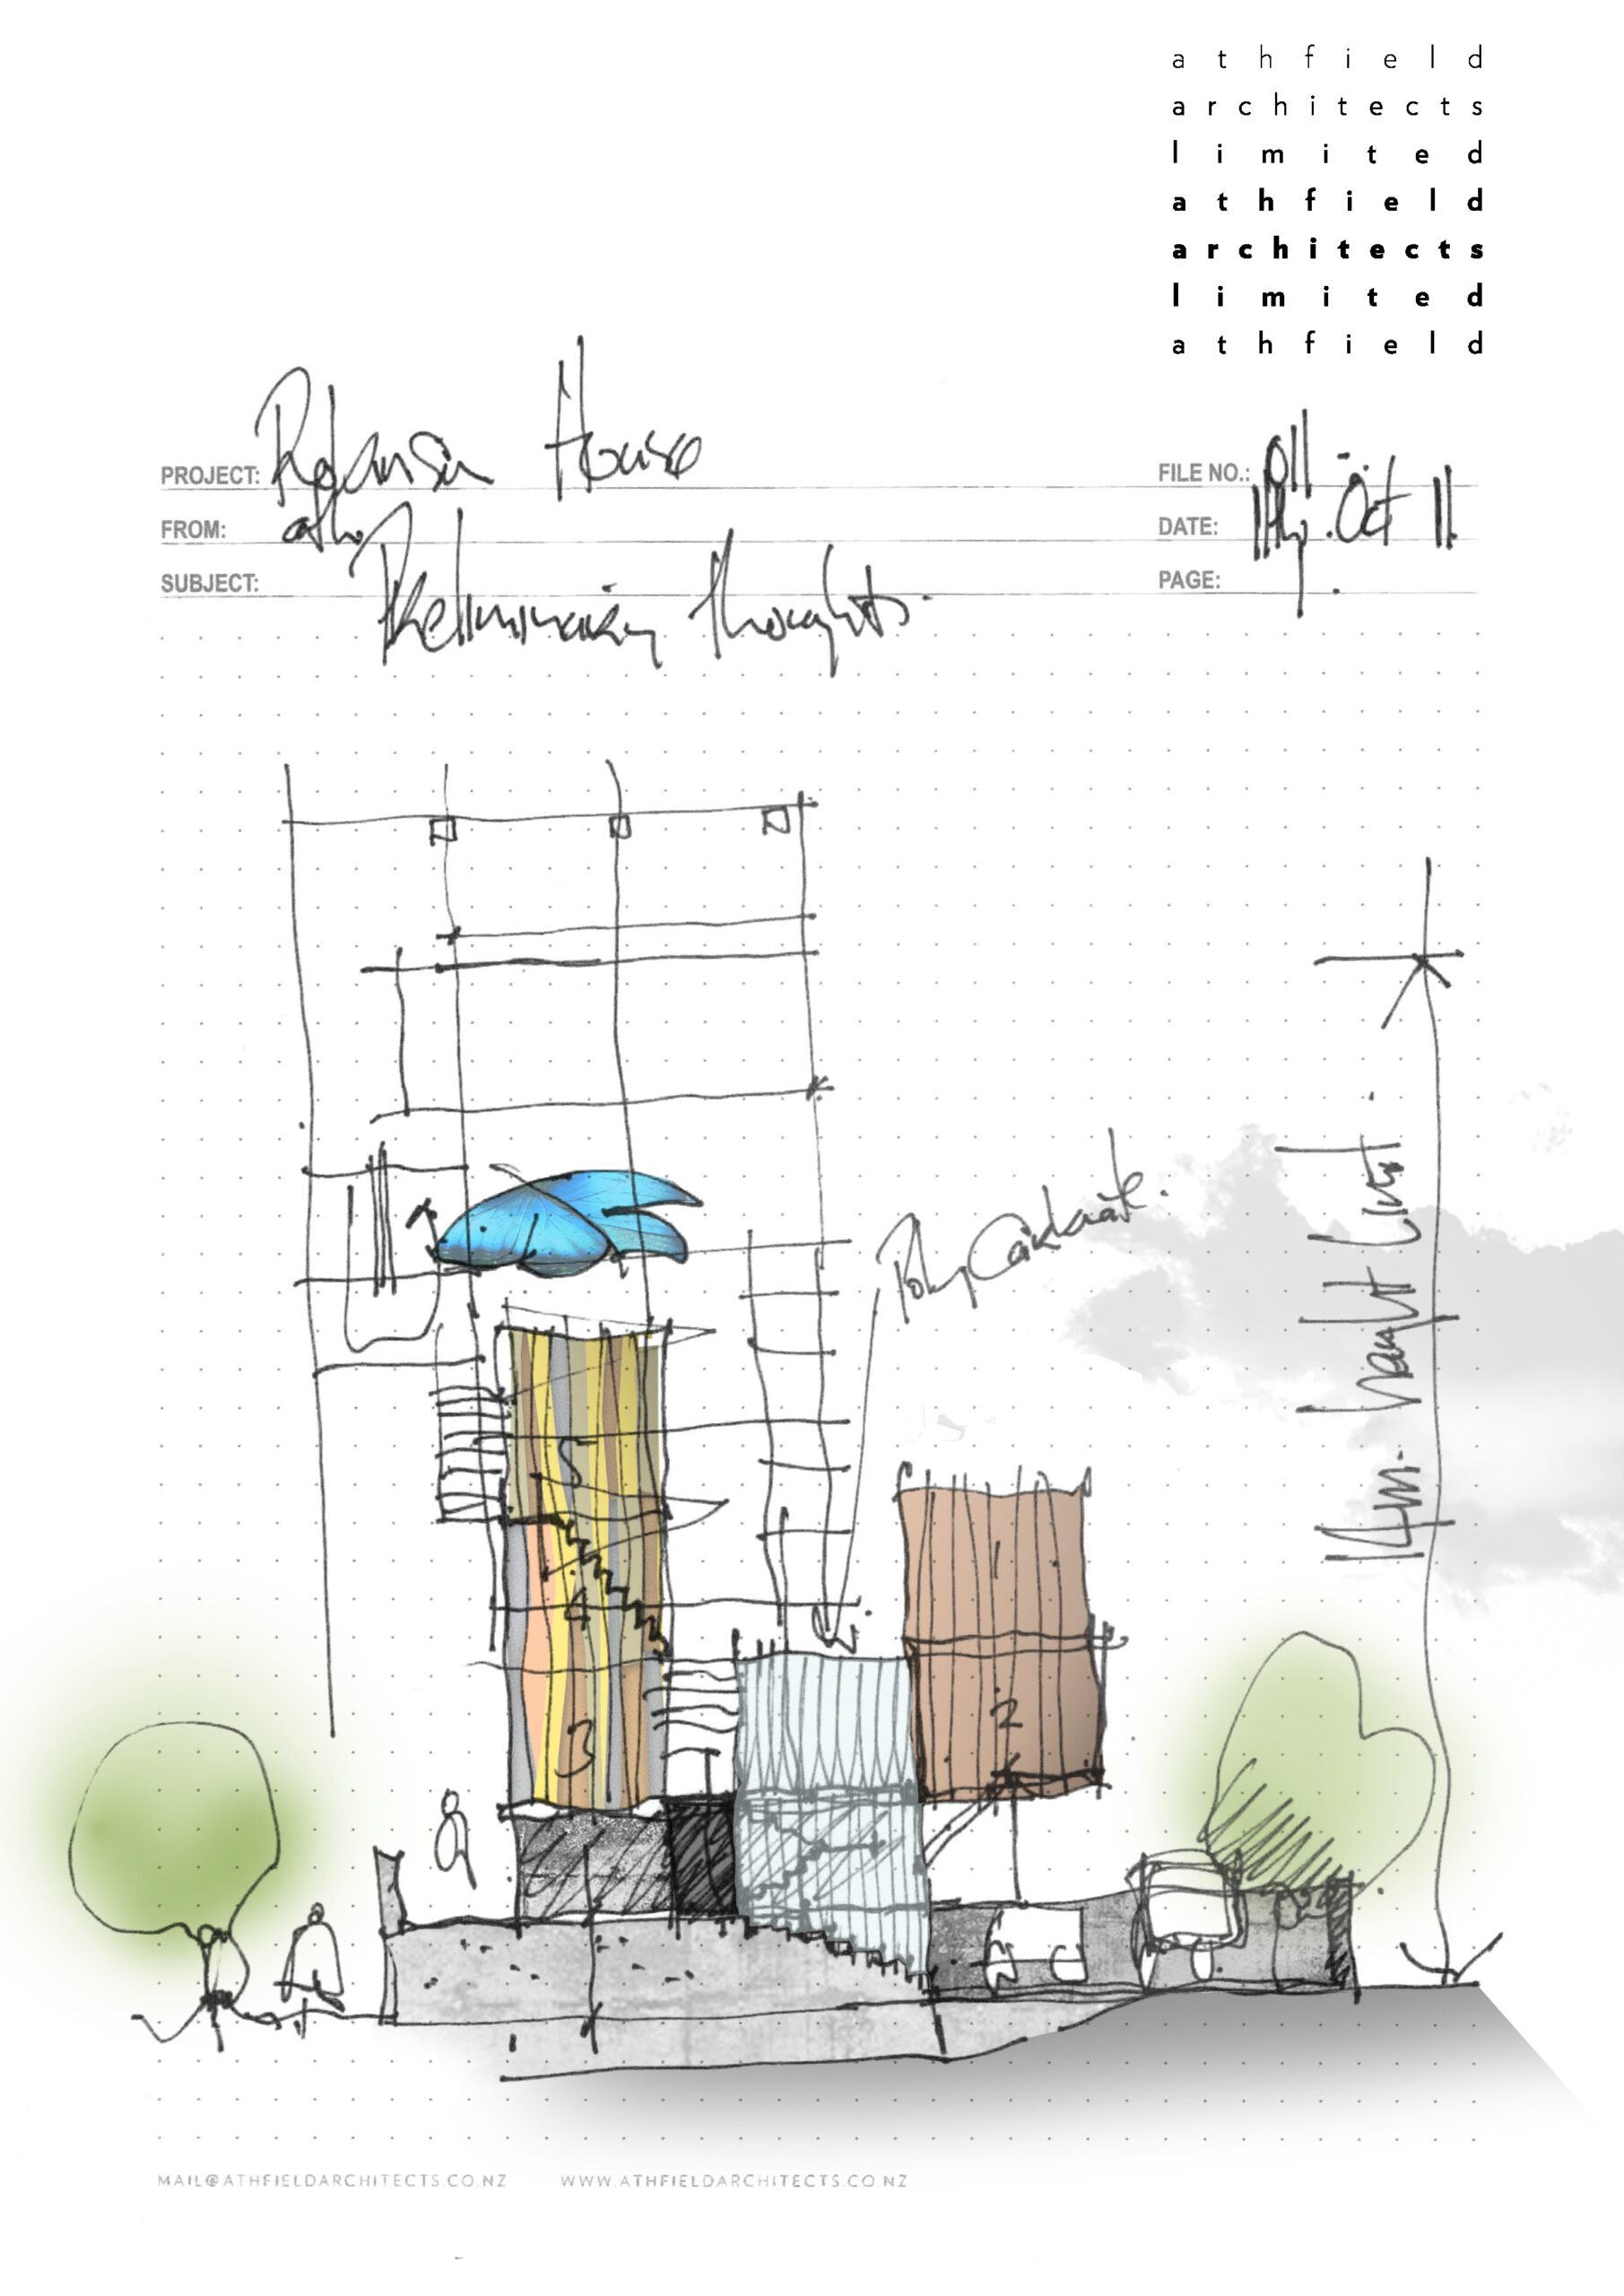 athfield
architects
limited
athfield
architects
limited
athfield
PROJECT: Robinson House
FILE NO.: 
FROM: ath
DATE: Oct 11.
SUBJECT: Preliminary thoughts.
PAGE:
Poly Carbonate.
height limit.
5
4
3
1
2
MAIL@ATHFIELDARCHITECTS.CO.NZ WWW.ATHFIELDARCHITECTS.CO.NZ